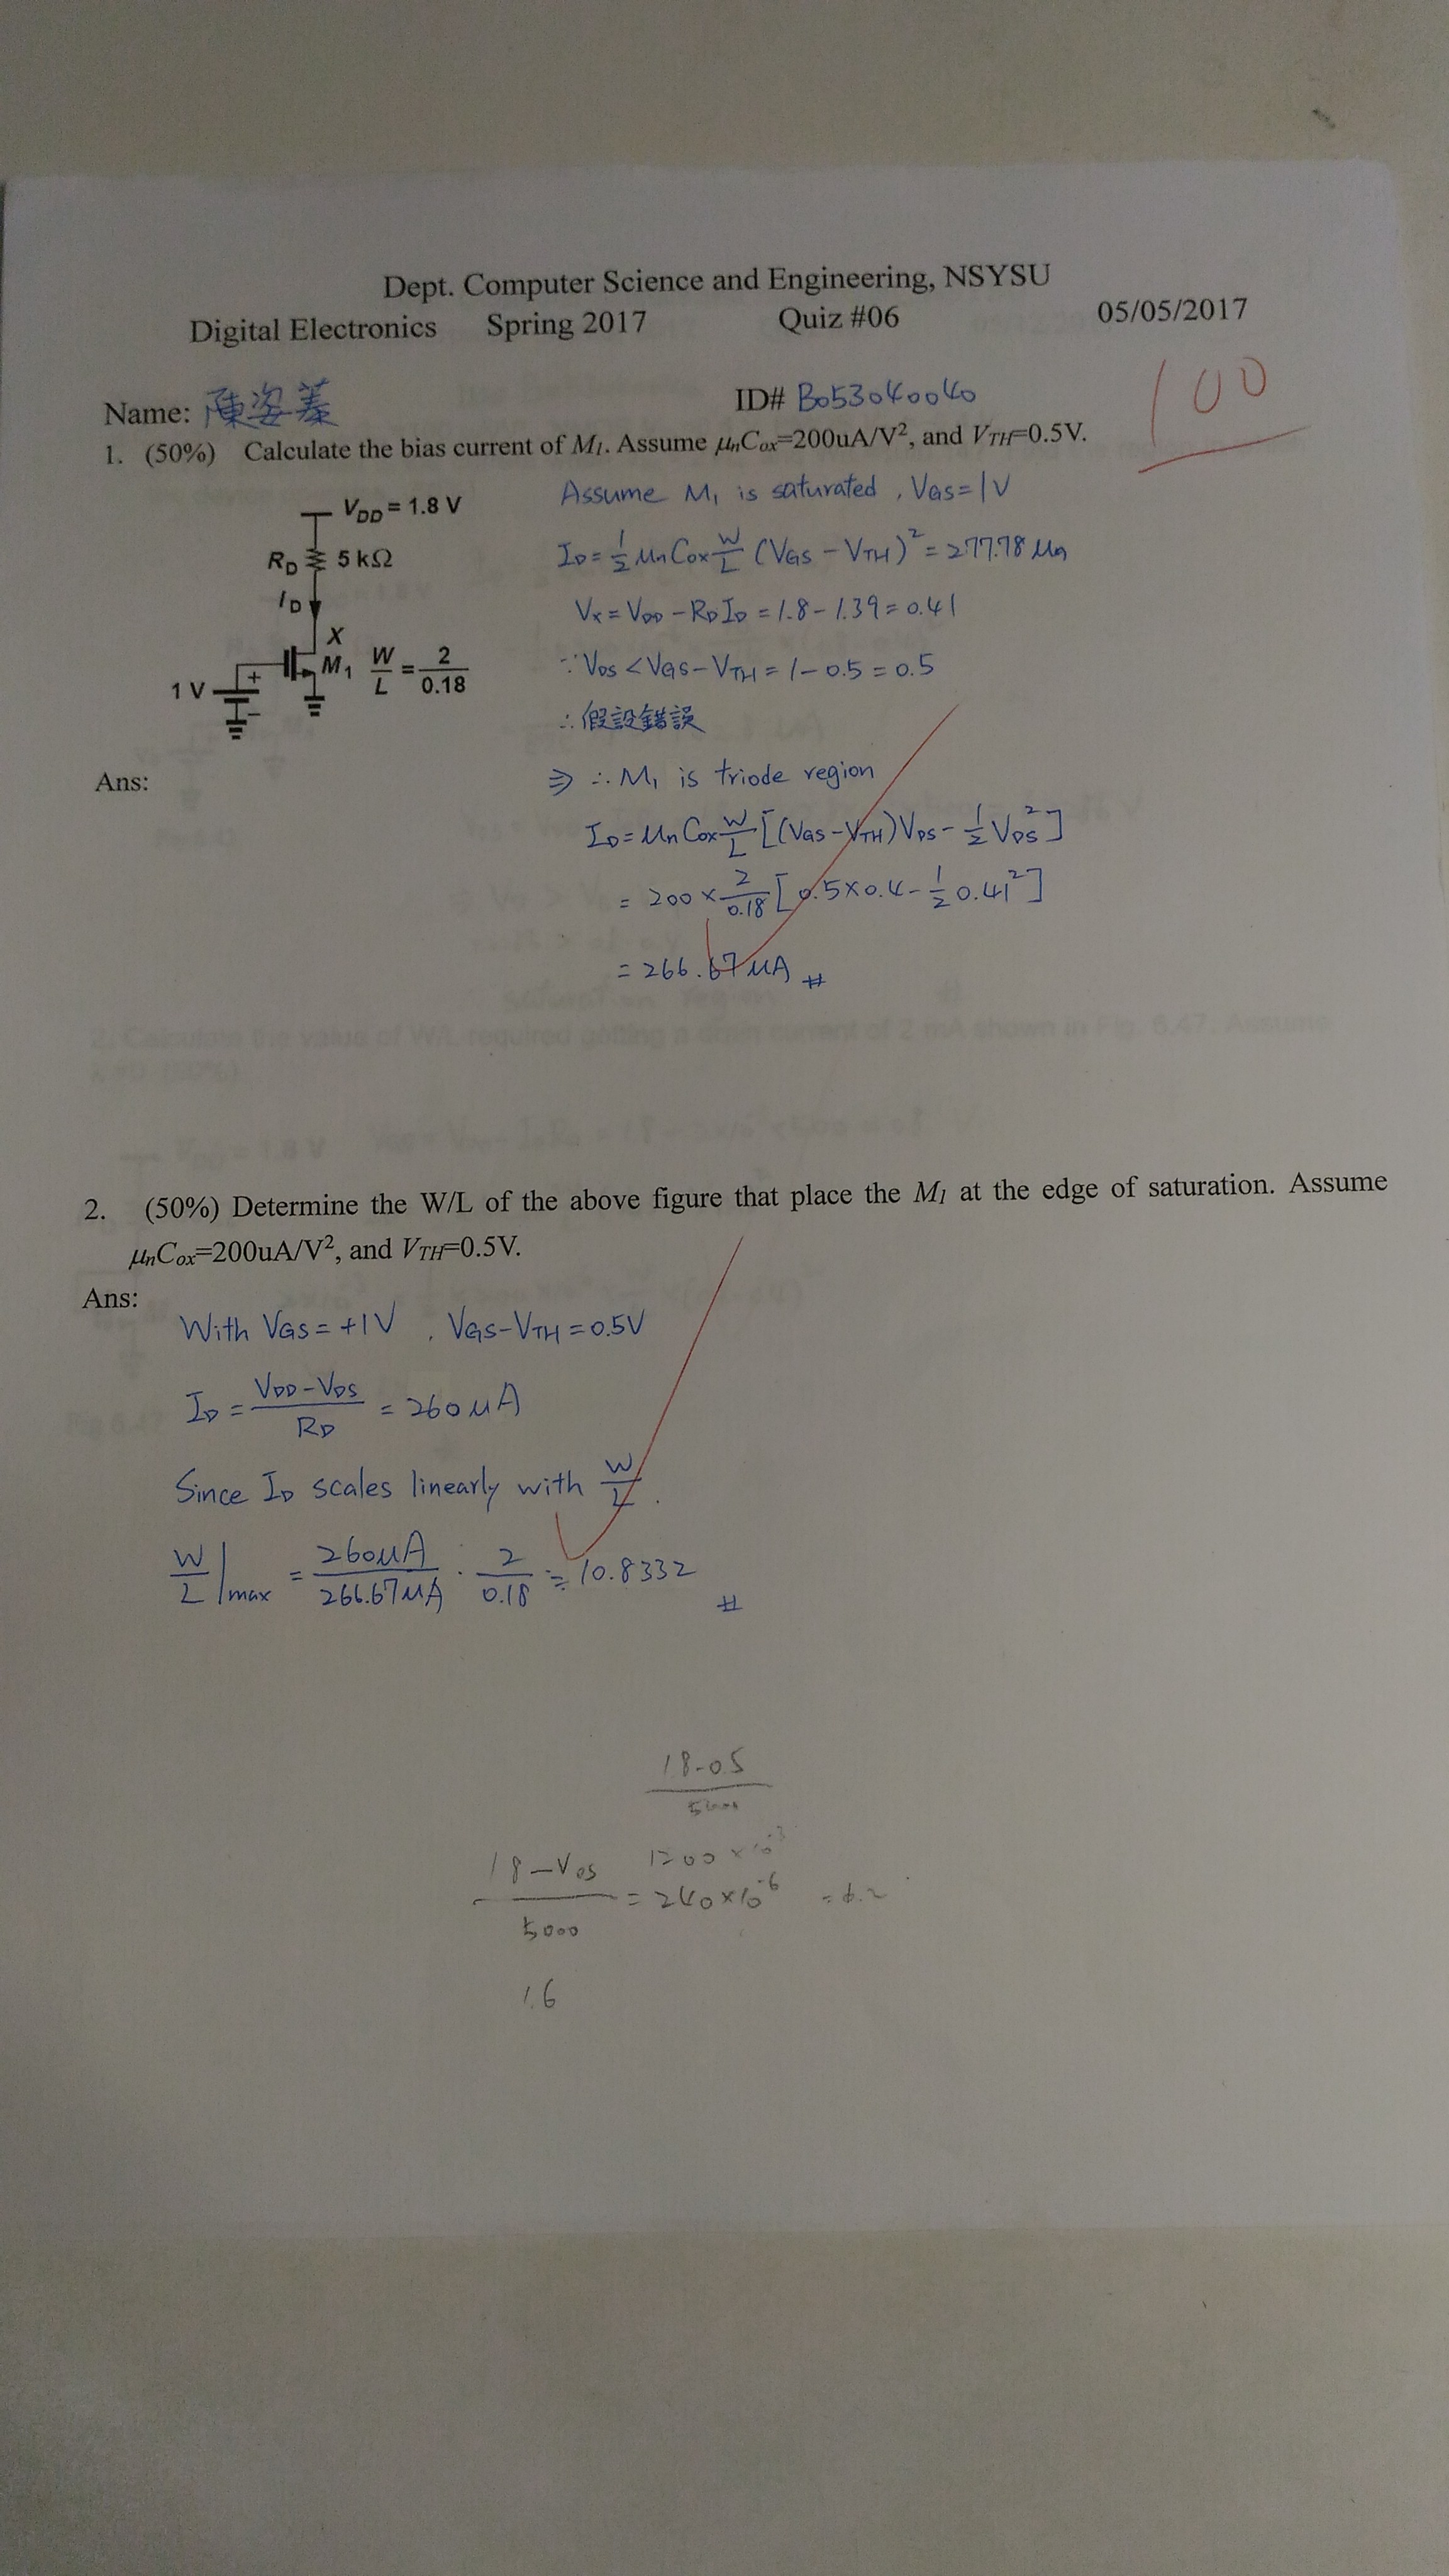 Dept. Computer Science and Engineering, NSYSU
Digital Electronics Spring 2017 Quiz #06 05/05/2017
100
Name: 陳姿蓁 ID# B053040040
1. (50%) Calculate the bias current of M1. Assume μnCox=200uA/V², and VTH=0.5V.
VDD = 1.8 V
RD 5 kΩ
ID
X
M1 W/L = 2/0.18
1 V + −
Assume M1 is saturated, VGS=1V
ID = 1/2 μnCox W/L (VGS − VTH)² = 277.78 μA
VX = VDD − RDID = 1.8 − 1.39 = 0.41
∵ VDS < VGS − VTH = 1 − 0.5 = 0.5
∴ 假設錯誤
Ans:
⇒ ∴ M1 is triode region
ID = μnCox W/L [(VGS − VTH)VDS − 1/2 VDS²]
= 200 × 2/0.18 [0.5×0.4 − 1/2 0.41²]
= 266.67 μA #
2. (50%) Determine the W/L of the above figure that place the M1 at the edge of saturation. Assume
μnCox=200uA/V², and VTH=0.5V.
Ans:
With VGS = +1V , VGS−VTH = 0.5V
ID = VDD−VDS / RD = 260 μA
Since ID scales linearly with W/L.
W/L |max = 260μA / 266.67μA · 2/0.18 ≒ 10.8332 #
1.8-0.5
1.8−VDS / 5000 = 240×10⁻⁶
1.6